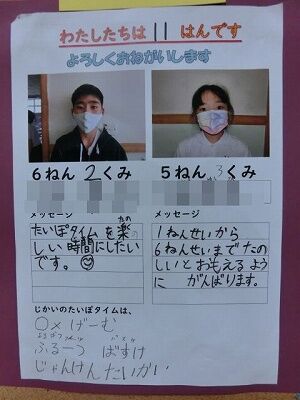 わたしたちは 11 はんです
よろしくおねがいします
6ねん2くみ
5ねん3くみ
メッセージ
たの
たいぽタイムを楽
しい時間にしたい
です。
メッセージ
1ねんせいから
6ねんせいまでたの
しいとおもえるよう
に がんばります。
じかいのたいぽタイムは、
○×げーむ
ふるーつ ばすけ
じゃんけんたいかい